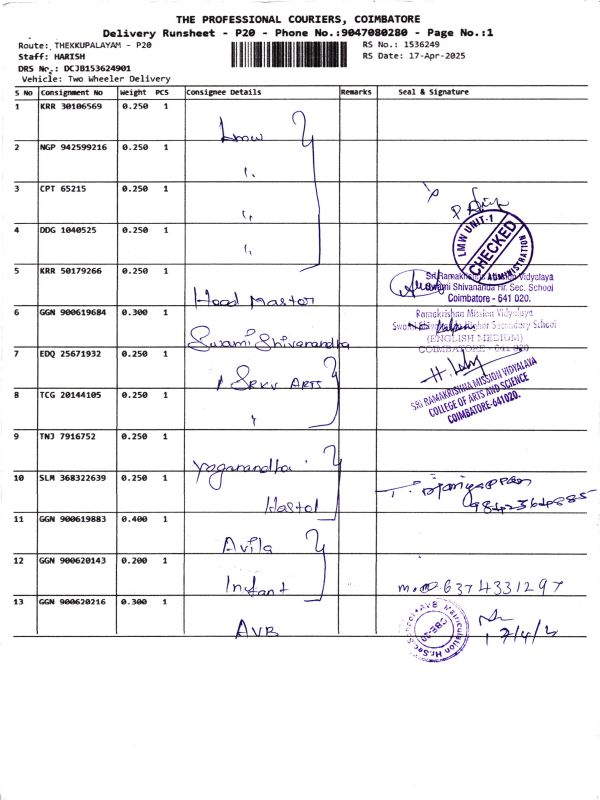 THE PROFESSIONAL COURIERS, COIMBATORE
Delivery Runsheet - P20 - Phone No.:9047080280 - Page No.:1
Route: THEKKUPALAYAM - P20
RS No.: 1536249
Staff: HARISH
RS Date: 17-Apr-2025
DRS No.: DCJB153624901
Vehicle: Two Wheeler Delivery
S No Consignment No Weight PCS Consignee Details Remarks Seal & Signature
1 KRR 30106569 0.250 1
Lmw
2 NGP 942599216 0.250 1
3 CPT 65215 0.250 1
4 DDG 1040525 0.250 1
LMW UNIT-1
CHECKED
ADMINISTRATION
5 KRR 50179266 0.250 1
Head Master
Sri Ramakrishna Mission Vidyalaya
Swami Shivananda Hr. Sec. School
Coimbatore - 641 020.
6 GGN 900619684 0.300 1
Swami Shivanandha
Ramakrishna Mission Vidyalaya
Swami Shivananda Higher Secondary School
(ENGLISH MEDIUM)
COIMBATORE - 641 020
7 EDQ 25671932 0.250 1
SRKV ARTS
SRI RAMAKRISHNA MISSION VIDYALAYA
COLLEGE OF ARTS AND SCIENCE
COIMBATORE-641020.
8 TCG 20144105 0.250 1
9 TNJ 7916752 0.250 1
yoganandha
10 SLM 368322639 0.250 1
Hastol
9842364885
11 GGN 900619883 0.400 1
Avila
12 GGN 900620143 0.200 1
Infant
6374331297
13 GGN 900620216 0.300 1
AVB
AVB Matriculation Hr.Sec.School
17/4/2